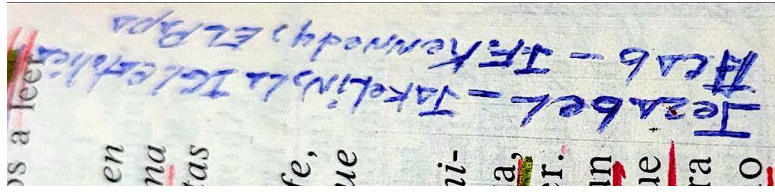 Jezabel - Jakelin, La IGL católica
Acab - J.F. Kennedy, EL Papa
os a leer
en
na
tas
fe,
ue
ni-
a,
er.
un
ue
ra